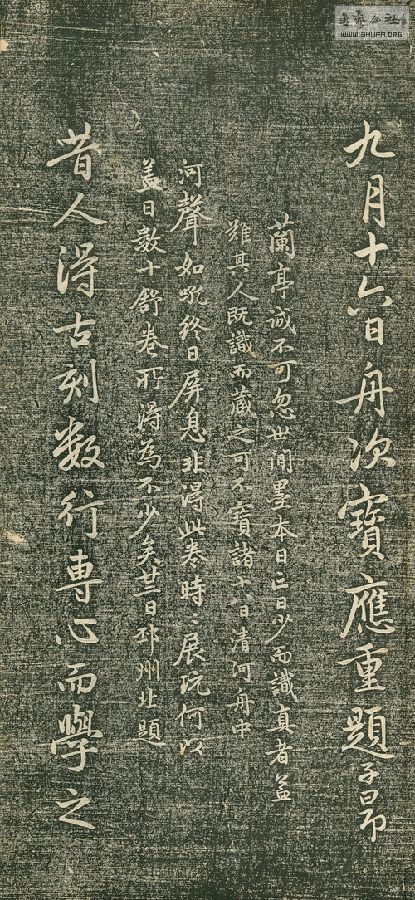 九月十六日舟次寶應重題子昂
蘭亭誠不可忽世間墨本日亡日少而識真者益
難其人既識而藏之可不寶諸十八日清河舟中
河聲如吼終日屏息非得此卷時〻展玩何以
蓋日數十舒卷所得為不少矣廿二日邳州北題
昔人得古刻数行専心而學之
書藝公社
WWW.SHUFA.ORG